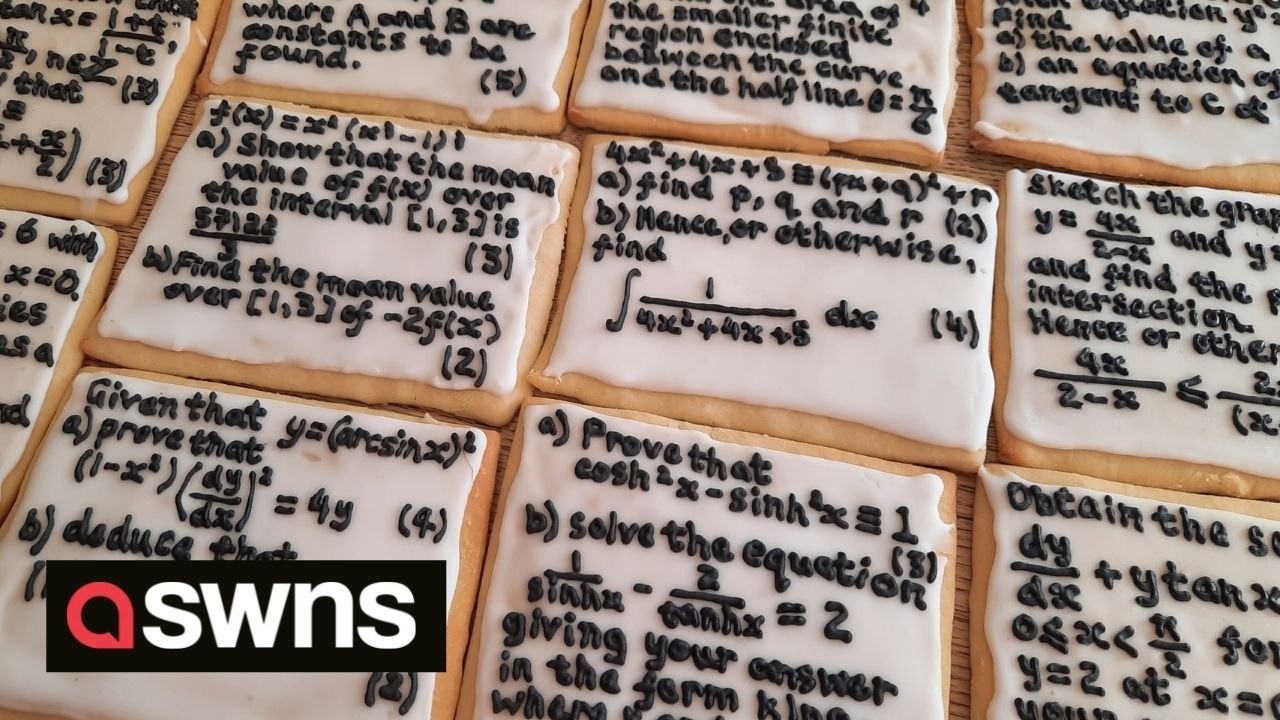 tan x = 1+t
1-t
that (3)
(3)
where A and B are
constants to be
found.
(5)
the smaller finite
region enclosed
between the curve
and the half line θ = π
6
find
a) the value of a
b) an equation of
tangent to C at
a) Show that the mean
value of f(x) over
the interval [1,3] is
(3)
b) Find the mean value
over [1,3] of -2f(x)
(2)
4x²+4x+5 ≡ (px+q)²+r
a) find p, q and r (2)
b) Hence, or otherwise,
find
∫ 1
4x²+4x+5 dx (4)
Sketch the
y = 4x
2-x and y
and find the
intersection.
Hence or
4x
2-x ≤
= 6 with
x=0
Given that y=(arcsin x)²
a) prove that
(1-x²)(dy/dx)² = 4y (4)
b) deduce that
(2)
a) Prove that
cosh²x - sinh²x ≡ 1
(3)
b) solve the equation
1/sinhx - 2/tanhx = 2
giving your answer
in the form
where
Obtain the
dy/dx + y tan x
0≤x< π/2
y=2 at x=
swns